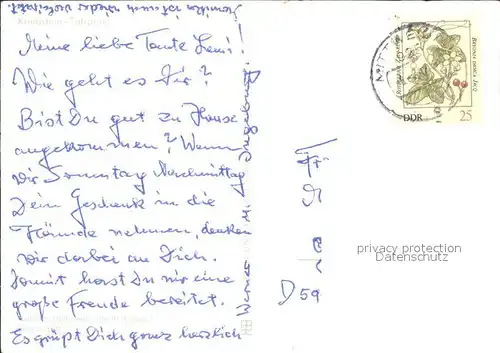 Meine liebe Tante Leni!
Wie geht es Dir?
Bist Du gut zu Hause
angekommen? Wenn
wir Sonntag Nachmittag
Dein Geschenk in die
Hände nehmen, denken
wir dabei an Dich.
Somit hast Du mir eine
große Freude bereitet.
Es grüßt Dich ganz herzlich
Werner u. Ingeborg!
Fr
D 59
DDR
25
privacy protection
Datenschutz